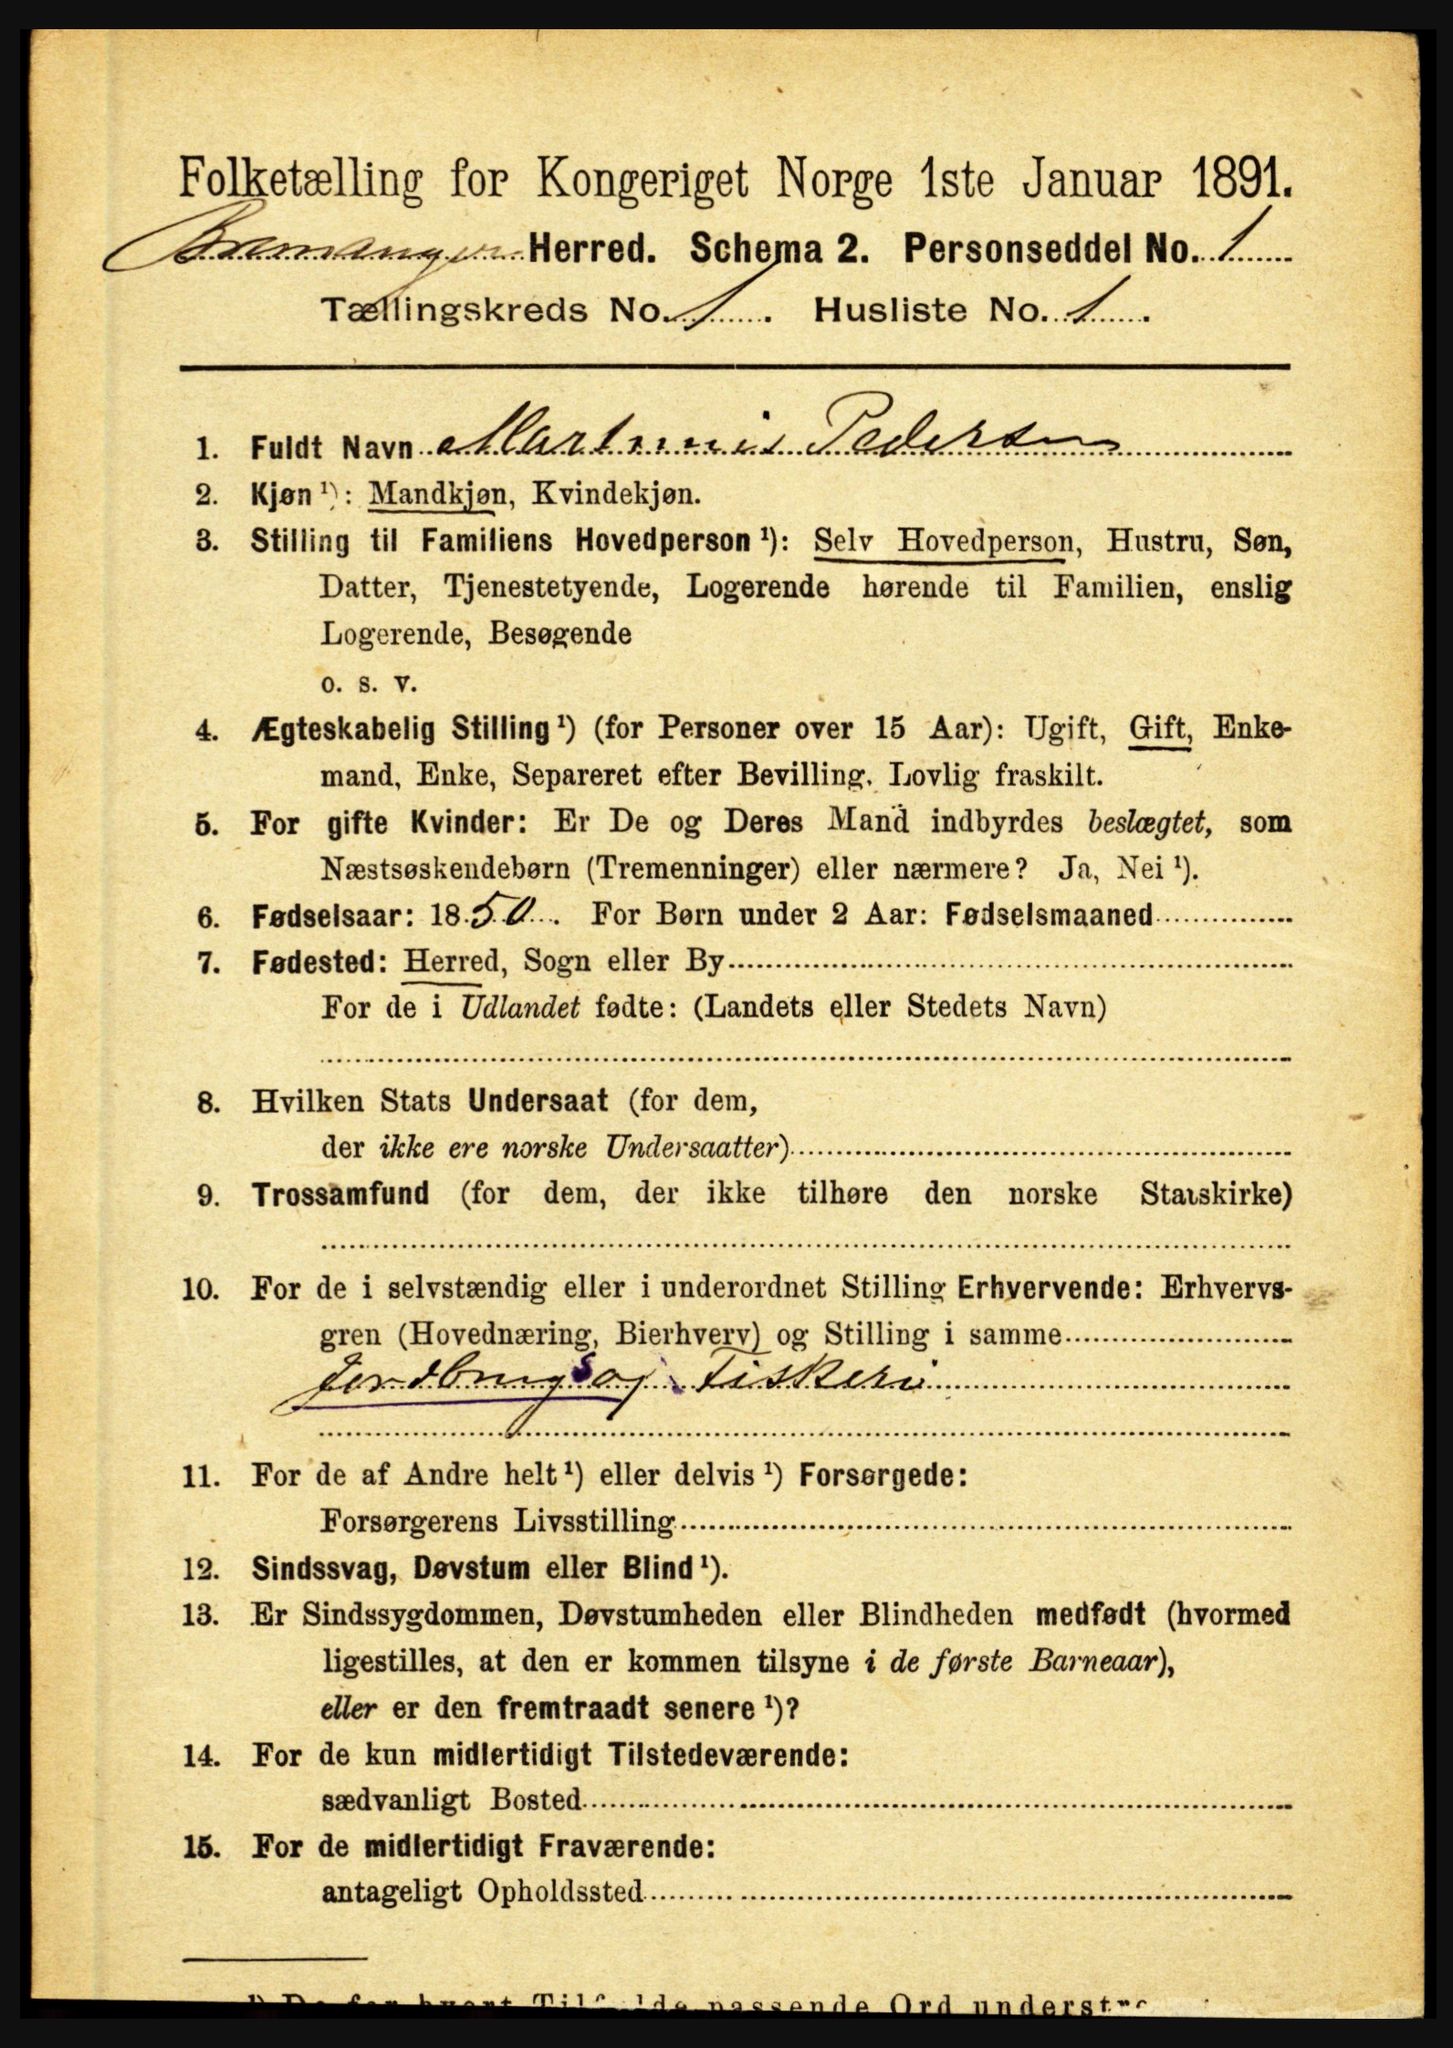 Folketælling for Kongeriget Norge 1ste Januar 1891.
Bremanger Herred. Schema 2. Personseddel No. 1
Tællingskreds No. 1. Husliste No. 1.
1. Fuldt Navn Martinus Pedersen
2. Kjøn ¹): Mandkjøn, Kvindekjøn.
3. Stilling til Familiens Hovedperson ¹): Selv Hovedperson, Hustru, Søn,
Datter, Tjenestetyende, Logerende hørende til Familien, enslig
Logerende, Besøgende
o. s. v.
4. Ægteskabelig Stilling ¹) (for Personer over 15 Aar): Ugift, Gift, Enke-
mand, Enke, Separeret efter Bevilling. Lovlig fraskilt.
5. For gifte Kvinder: Er De og Deres Mand indbyrdes beslægtet, som
Næstsøskendebørn (Tremenninger) eller nærmere? Ja, Nei ¹).
6. Fødselsaar: 1850. For Børn under 2 Aar: Fødselsmaaned
7. Fødested: Herred, Sogn eller By
For de i Udlandet fødte: (Landets eller Stedets Navn)
8. Hvilken Stats Undersaat (for dem,
der ikke ere norske Undersaatter)
9. Trossamfund (for dem, der ikke tilhøre den norske Statskirke)
10. For de i selvstændig eller i underordnet Stilling Erhvervende: Erhvervs-
gren (Hovednæring, Bierhverv) og Stilling i samme
Jordbrug s og Fiskeri
11. For de af Andre helt ¹) eller delvis ¹) Forsørgede:
Forsørgerens Livsstilling
12. Sindssvag, Døvstum eller Blind ¹).
13. Er Sindssygdommen, Døvstumheden eller Blindheden medfødt (hvormed
ligestilles, at den er kommen tilsyne i de første Barneaar),
eller er den fremtraadt senere ¹)?
14. For de kun midlertidigt Tilstedeværende:
sædvanligt Bosted
15. For de midlertidigt Fraværende:
antageligt Opholdssted
¹) De for hvert Tilfælde passende Ord understre